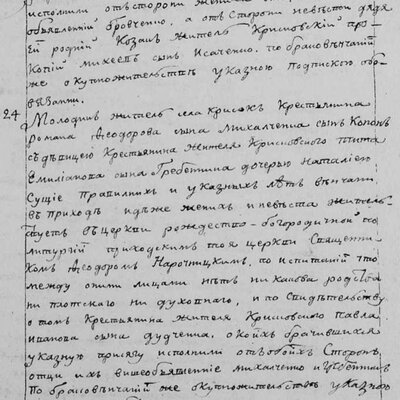 исполнили отъ стороны жениха
объявленнїй бровченко, а отъ стороны невѣсты дядя
ей Козакъ житель Крисковскїй про
копїй михеевъ сынъ Исаченко, по браковѣнчанїй
же о купножительствѣ указною подпискою обо
вѣзани.
24 Молодикъ житель села Крисокъ Крестьянина
Романа Ѳеодорова сына Михалченка сынъ Кононъ
съ дѣвицею Крестьянина жителя Крисковского Тита
Емилїанова сына Гребетника дочерью Наталїею
Сущїе Правилнихъ и указныхъ лѣтъ вѣнчани
въ приходѣ идѣже женихъ и невѣста житель
ствуетъ въ церкви рождество-богородичной по
литургїй приходскимъ тоя церкви Священни
комъ Ѳеодоромъ Нарочницкимъ, по испытанїй что
между оними лицами нѣтъ никакова родства
ни плотского ни духовнаго, и по свидѣтельству
о томъ Крестьянина жителя Крисковского павла
иванова сына дудченка, о коихъ брачившихся
указную присягу исполнили отъ обоихъ сторонъ
отци ихъ вишеобъявленнїе михалченко и гребетникъ
По браковѣнчанїй же о купножительствѣ указною